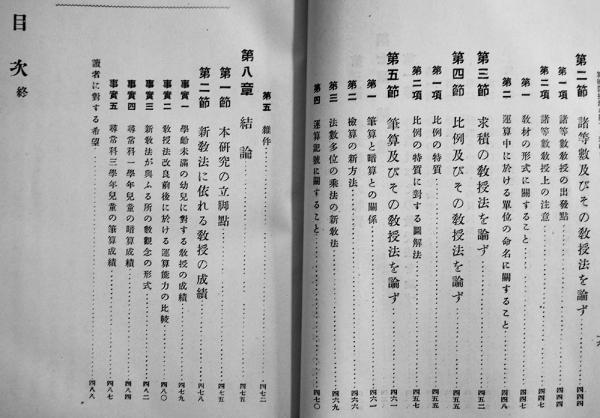 第二節 諸等數及びその敎授法を論ず 四四四
第一項 諸等數敎授の出發點 四四四
第二項 諸等數敎授上の注意 四四七
第一 敎材の形式に關すること 四四七
第二 運算中に於ける單位の命名に關すること 四四八
第三節 求積の敎授法を論ず 四五
第四節 比例及びその敎授法を論ず 四五五
第一項 比例の特質 四五五
第二項 比例の特質に對する圖解法 四五七
第五節 筆算及びその敎授法を論ず 四六一
第一 筆算と暗算との關係 四六一
第二 檢算の新方法 四六六
第三 法數多位の乘法の新敎法 四六九
第四 運算記號に關すること 四七〇
第五 雜件 四七二
第八章 結論
第一節 本研究の立脚點 四七五
第二節 新敎法に依れる敎授の成績 四七八
事實一 學齡未滿の幼兒に對する敎授の成績 四七九
事實二 敎授法改良前後に於ける運算能力の比較 四八〇
事實三 新敎法が與ふる所の數觀念の形式 四八二
事實四 尋常科一學年兒童の暗算成績 四八四
事實五 尋常科三學年兒童の筆算成績 四八七
讀者に對する希望 四八八
目次 終